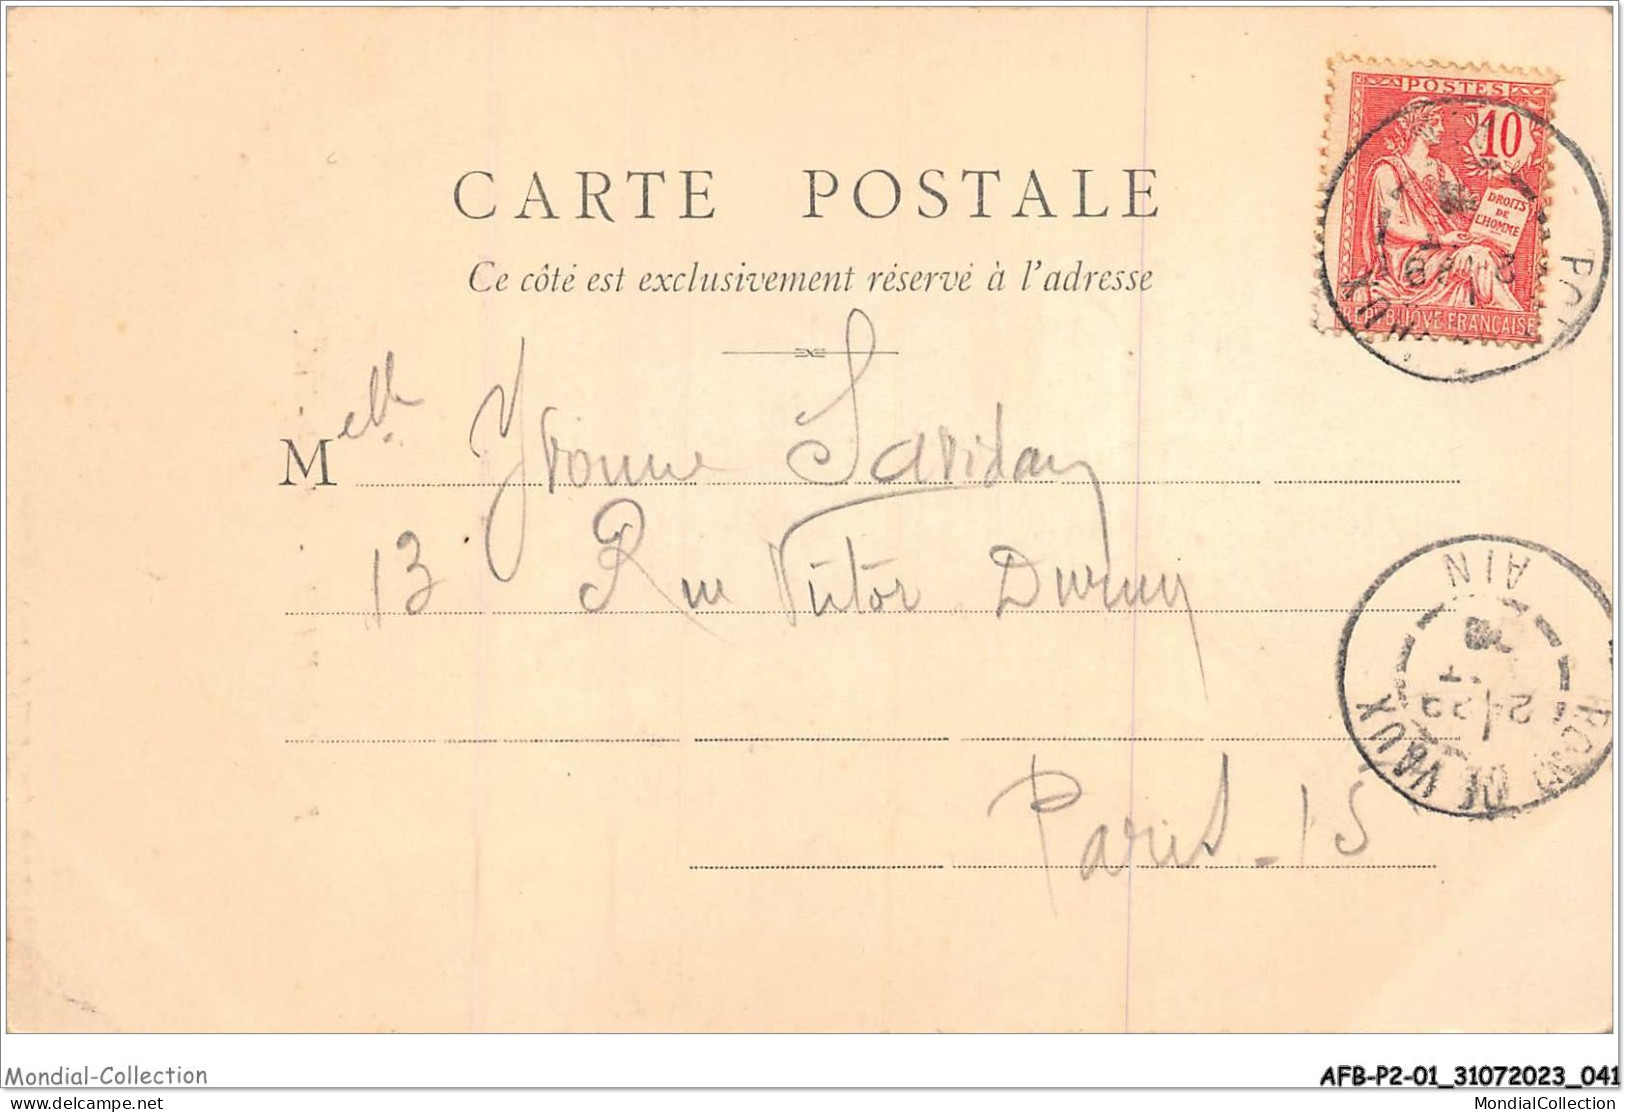 POSTES
10
DROITS
DE
L'HOMME
REPUBLIQUE FRANCAISE
CARTE POSTALE
Ce côté est exclusivement réservé à l'adresse
Melle Yvonne Savidan
13 Rue Victor Duruy
Paris - 15
AIN
DE VAUX
Mondial-Collection
AFB-P2-01_31072023_041
delcampe.net
MondialCollection